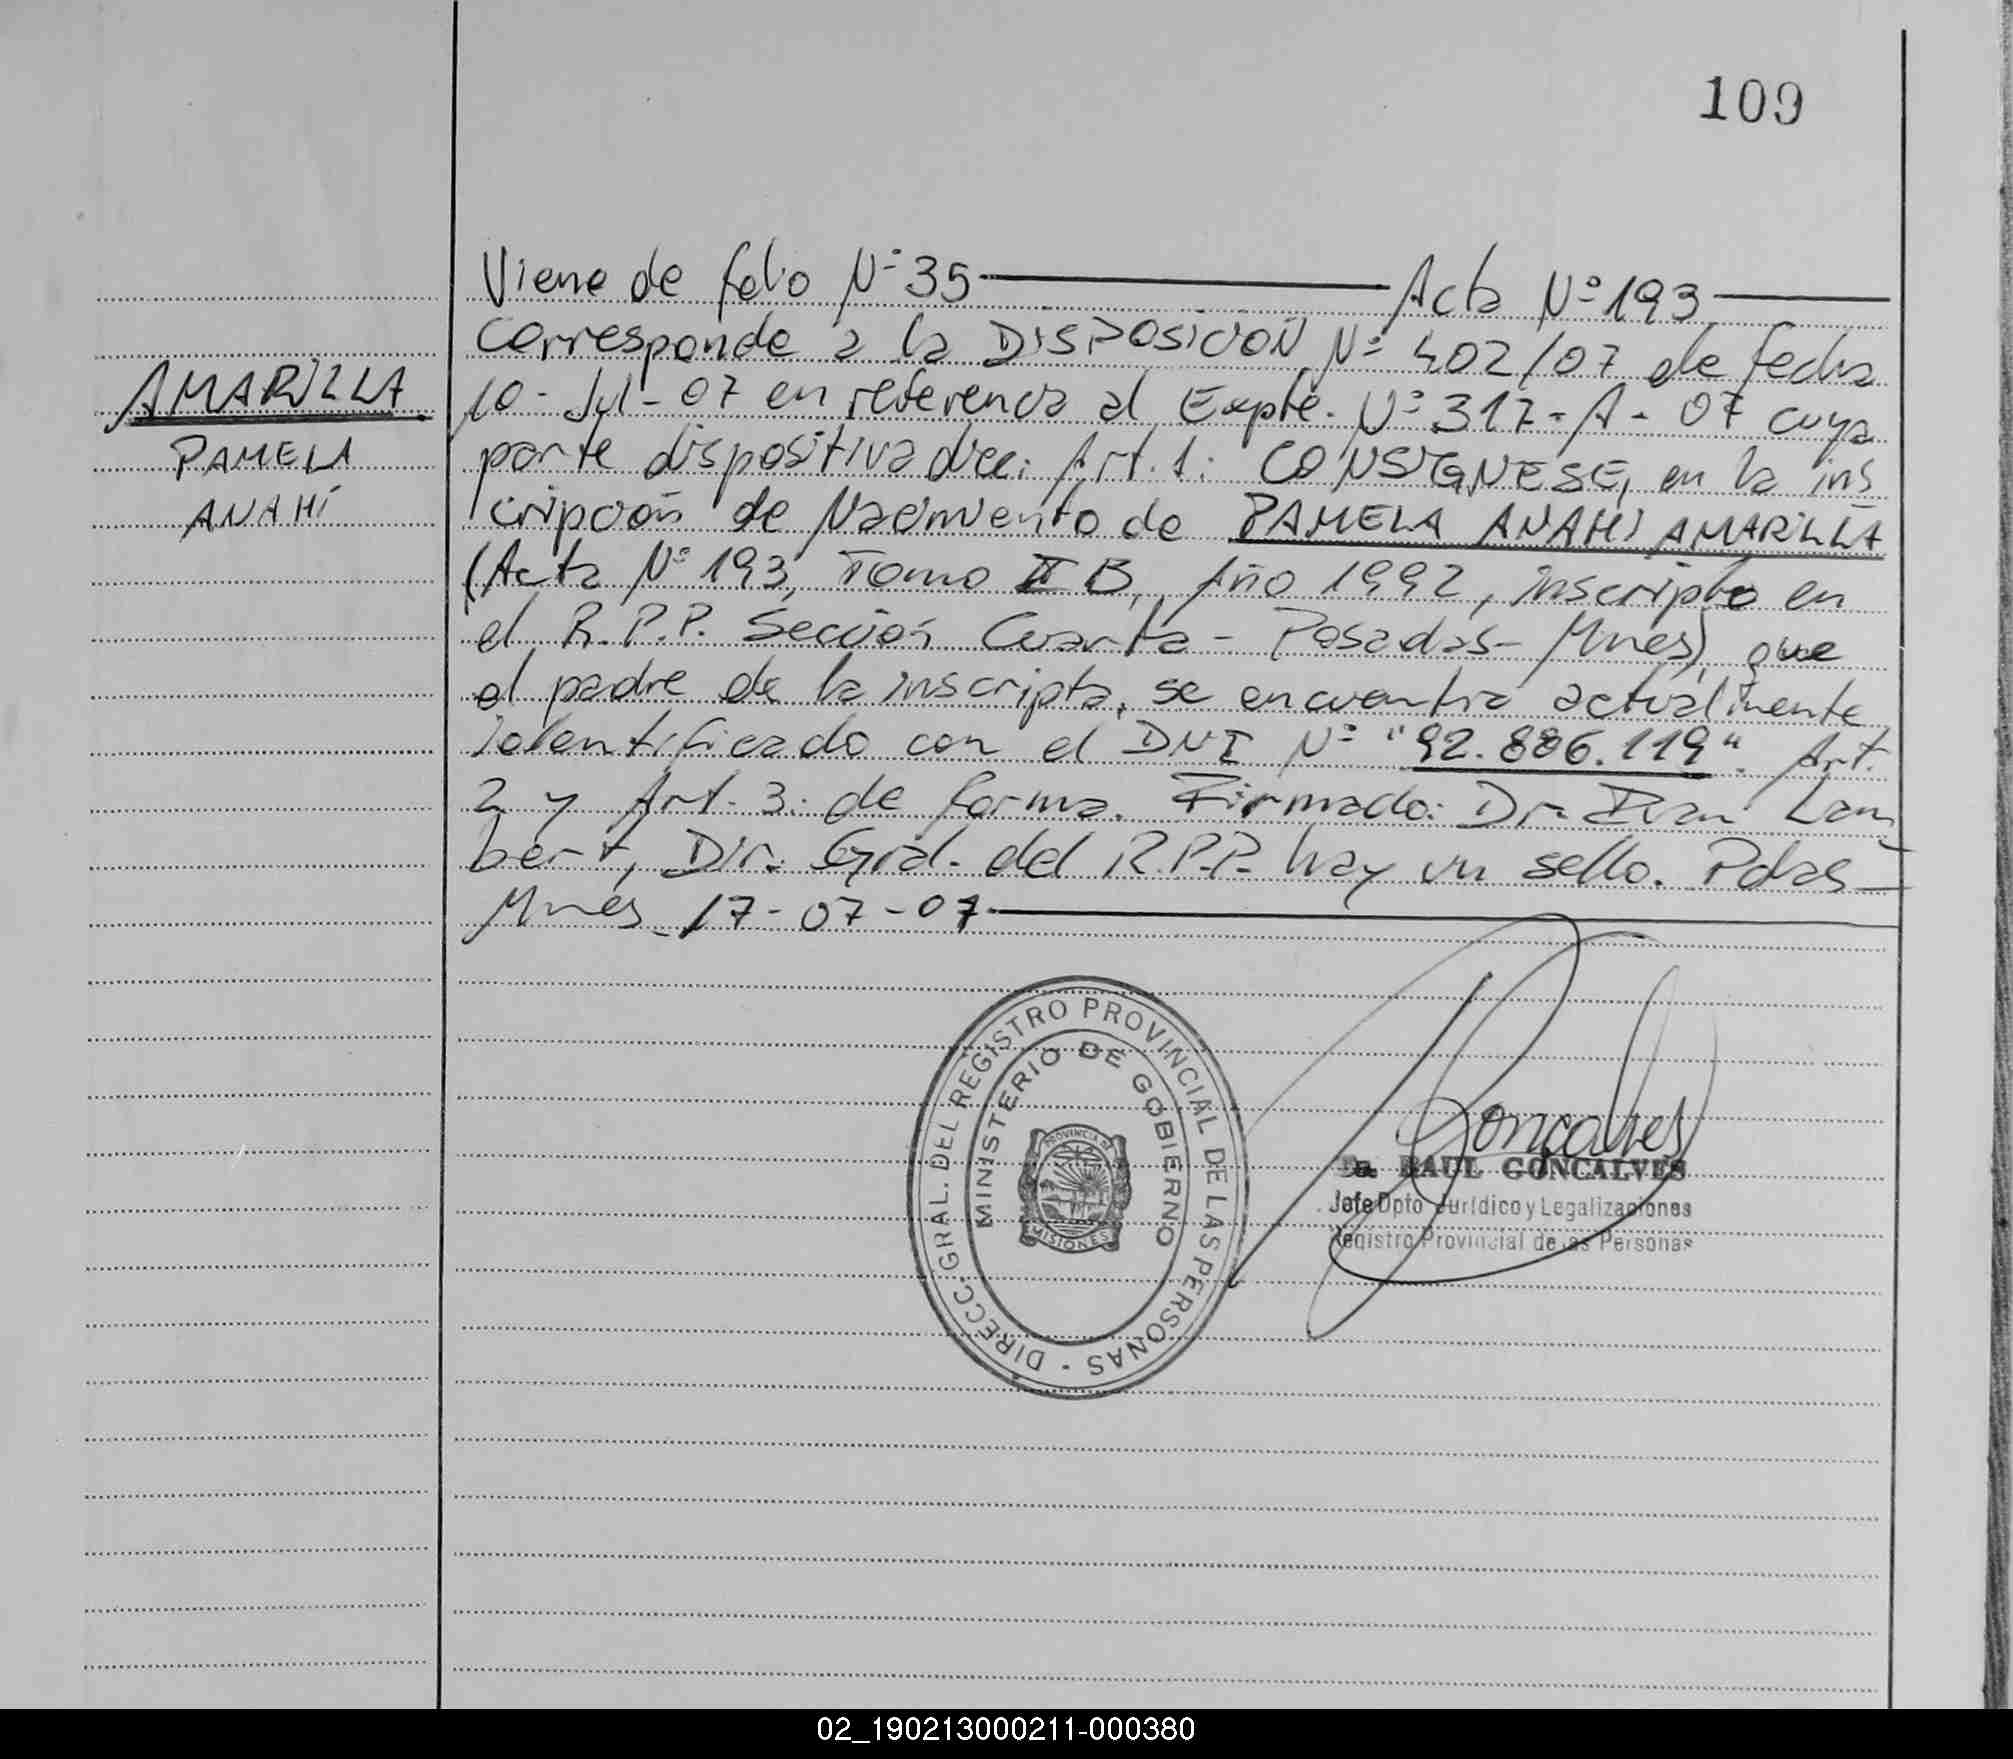 109
Viene de folio Nº 35 — Acta Nº 193 —
Corresponde a la DISPOSICION Nº 402/07 de fecha
AMARILLA
10-Jul-07 en referencia al Expte. Nº 317-A-07 cuya
PAMELA
parte dispositiva dice: Art. 1: CONSIGNESE, en la ins
ANAHÍ
cripción de Nacimiento de PAMELA ANAHI AMARILLA
(Acta Nº 193, Tomo II B, Año 1992, inscripto en
el R.P.P. Sección Cuarta - Posadas - Mnes), que
el padre de la inscripta, se encuentra actualmente
identificado con el DNI Nº "92.886.119". Art.
2 y Art. 3: de forma. Firmado: Dr. Ivan Lam
bert, Dir. Gral. del R.P.P. hay un sello. Pdas -
Mnes, 17-07-07 —
DIRECC. GRAL. DEL REGISTRO PROVINCIAL DE LAS PERSONAS -
MINISTERIO DE GOBIERNO
PROVINCIA DE
MISIONES
Gonçalves
RAUL GONCALVES
Jefe Dpto Jurídico y Legalizaciones
Registro Provincial de las Personas
02_190213000211-000380